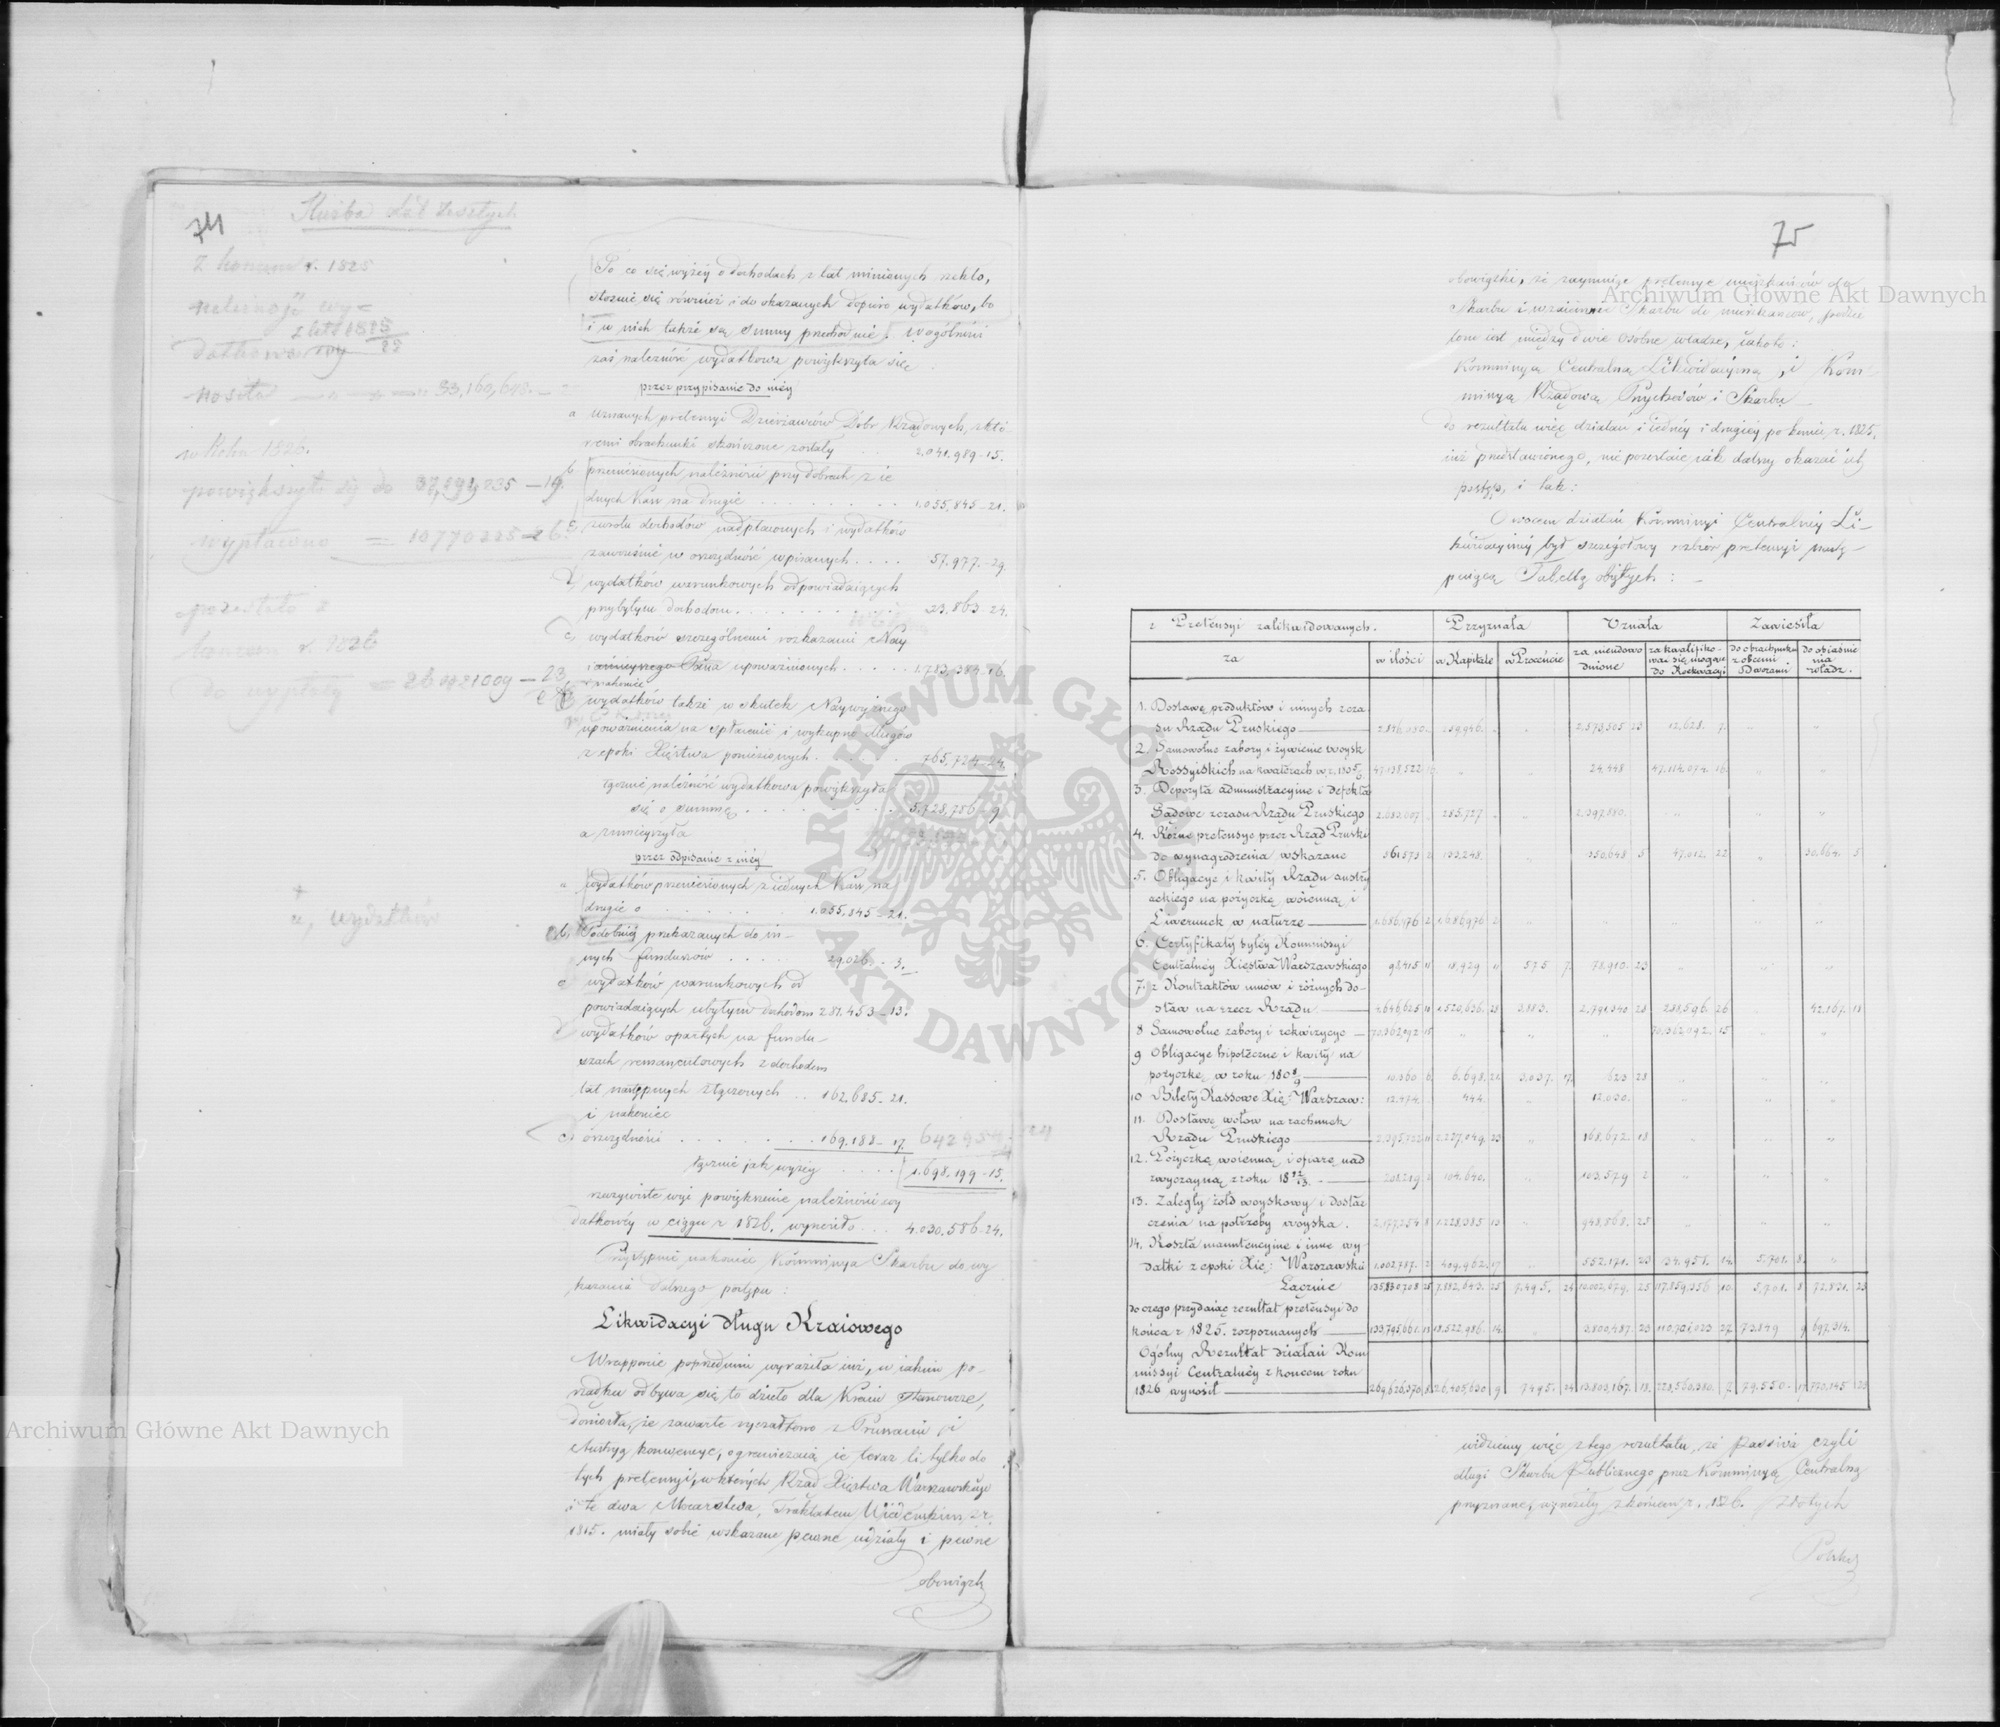 74
Służba lat zeszłych
Z końcem r. 1825
należność wy=
z lat 1815/25
datkowa
nosiła 33,160,648.
w Roku 1826.
powiększyła się do 37,291,235 — 19.
wypłacono = 10770225
pozostało z
końcem r. 1826
do wypłaty
a, wydatków
To co się wyżey o dochodach z lat minionych rzekło,
stosuie się również i do okazanych dopiero wydatków, bo
i w nich także są summy przechodnie. W ogólności
zaś należność wydatkowa powiększyła się
przez przypisanie do niéy
a uznanych pretensyi Dzierżawców Dóbr Rządowych, z któ-
remi obrachunki skończone zostały . . 2,041,989-15.
b przeniesionych należności przy dobrach z ie
dnych Kass na drugie . . . . 1,055,845-21.
c zwrotu dochodów nadpłaconych i wydatków
zawcześnie w oszczędność wpisanych . . . . 57,977.-29.
d wydatków warunkowych odpowiadaiących
przybytym dochodom . . . . . 23,863-24.
e) wydatków szczególnemi rozkazami Nay
upoważnionych . . . . 1,783,384-16.
i nakoniec
f wydatków także w skutek Naywyższego
upoważnienia na spłacenie i wykupno długów
z epoki Xięstwa poniesionych . . . . 765,724-24.
łącznie należność wydatkowa powiększyła
się o summę . . . . 5,728,786-9
a zmnieyszyła
przez odpisanie z niéy
a wydatków przeniesionych z iednych Kass na
drugie o . . . . 1,055,845-21.
b, Podobnież przekazanych do in-
nych funduszów . . . . 29,026-3.
c wydatków warunkowych od
powiadaiących ubytym dochodom 281,453-13.
d wydatków opartych na fundu-
szach remanentowych z dochodem
lat następnych złączonych . . 162,685-21.
i nakoniec
e) oszczędności . . . . 169,188-17.
łącznie jak wyżéy . . . . 1,698,199-15.
rzeczywiste więc powiększenie należności wy
datkowéy w ciągu r. 1826. wynosiło . . . 4,030,586-24.
Przystąpmy nakoniec Kommissya Skarbu do wy
kazania dalszego postępu:
Likwidacyi długu Kraiowego
W rapporcie poprzednim wyraziła iuż, w iakim po-
rządku odbywa się to dzieło dla Kraiu stanowcze,
doniosła, że zawarte wyrażono z Prussami i
Austryą konwencye, ograniczaią ie teraz li tylko do
tych pretensyi, w których Rząd Xięstwa Warszawskiego
i te dwa Mocarstwa, Traktatem Wiedeńskim z r.
1815. miały sobie wskazane pewne udziały i pewne
obowiązk
75
obowiązki, że zaymuiąc pretensye mieszkańców do
Skarbu i wzaiemnie Skarbu do mieszkańców, podzie
lone iest między dwie osobne władze, iakoto:
Kommissyą Centralną Likwidacyiną, i Kom-
missyą Rządową Przychodów i Skarbu
do rezultatu więc działań i iednéy i drugiéy po koniec r. 1825,
iuż przedstawionego, nie pozostaie iak dalszy okazać ich
postęp, i tak:
Owocem działań Kommissyi Centralnéy Li-
kwidacyinéy był szczegółowy rozbiór pretensyi nastę-
puiącą Tabellą obiętych: -
z Pretensyi zalikwidowanych. Przyznała Uznała Zawiesiła
za w ilości w Kapitale w Procencie za nieudowo dnione za kwalifiko- wać się mogące do Reekwacyi do obrachunku z obcemi Dworami do obiaśnie nia władz.
1. Dostawę produktów i innych z cza
su Rządu Pruskiego 2,573,505 23 12,628. 7.
2. Samowolne zabory i żywienie woysk
Rossyiskich na kwaterach w r. 24,448 47,114,074. 16
3. Depozyta administracyine i defekta
Sądowe z czasu Rządu Pruskiego 285,727 2,397,880.
4. Różne pretensye przez Rząd Pruski
do wynagrodzenia wskazane 561,573 2 133,248. 350,648 5 47,012. 22 30,664. 5
5. Obligacye i kwity Rządu austry
ackiego na pożyczkę woienną i
Liwerunek w naturze 1,686,976 2 1,686,976 2
6. Certyfikaty byłéy Kommissyi
Centralnéy Xięstwa Warszawskiego 98,415 11 18,929 11 575 7 78,910. 23
7. z Kontraktów umów i różnych do-
staw na rzecz Rządu 4,646,625 10 1,520,636. 28 3,883. 2,791,340 28 288,596. 26 42,167. 18
8 Samowolne zabory i rekwizycye 70,362,092 15 70,362,092. 15
9 Obligacye hipoteczne i kwity na
pożyczkę w roku 180 8/9 10,360 6 6,698. 21 3,037. 17. 623 28
10 Bilety Kassowe Xię: Warszaw: 12,474. 444. 12,030.
11. Dostawę wołów na rachunek
Rządu Pruskiego 2,395,722 11 2,227,049. 23 168,672 18
12. Pożyczkę woienną i ofiarę nad
zwyczayną z roku 18 12/13. 208,219 2 104,640. 103,579 2
13. Zaległy żołd woyskowy i dostar
czenia na potrzeby woyska. 2,177,254 8 1,228,385 13 948,868. 25
14. Koszta manutencyine i inne wy
datki z epoki Xię: Warszawskie 1,002,787. 2 409,962. 17 552,171. 23 134,958. 14 5,701. 8
Łącznie 135,830,708 28 7,882,643. 25 7,495. 24 10,002,679. 25 117,859,356 10. 5,701. 8 72,831. 23
do czego przydaiąc rezultat pretensyi do
końca r 1825. rozpoznanych 133,795,661. 11 18,522,986. 14. 3,800,487. 23 110,701,023 27 73,849 9 697,314.
Ogólny Rezultat działań Kom
missyi Centralnéy z końcem roku
1826 wynosił 269,626,370 8 26,405,630 9 7495. 24 13,803,167. 18. 228,560,380. 7 79,550 17 770,145 23
widziemy więc z tego rezultatu, że passiva czyli
długi Skarbu Publicznego przez Kommissyą Centralną
przyznane, wynosiły z końcem r. 1826. złotych
Archiwum Główne Akt Dawnych
Archiwum Główne Akt Dawnych
ARCHIWUM GŁÓWNE AKT DAWNYCH